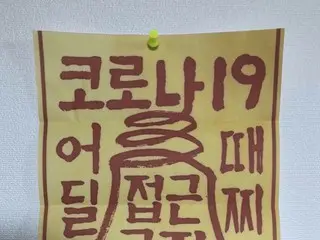 코로나19
어딜
접근
때찌